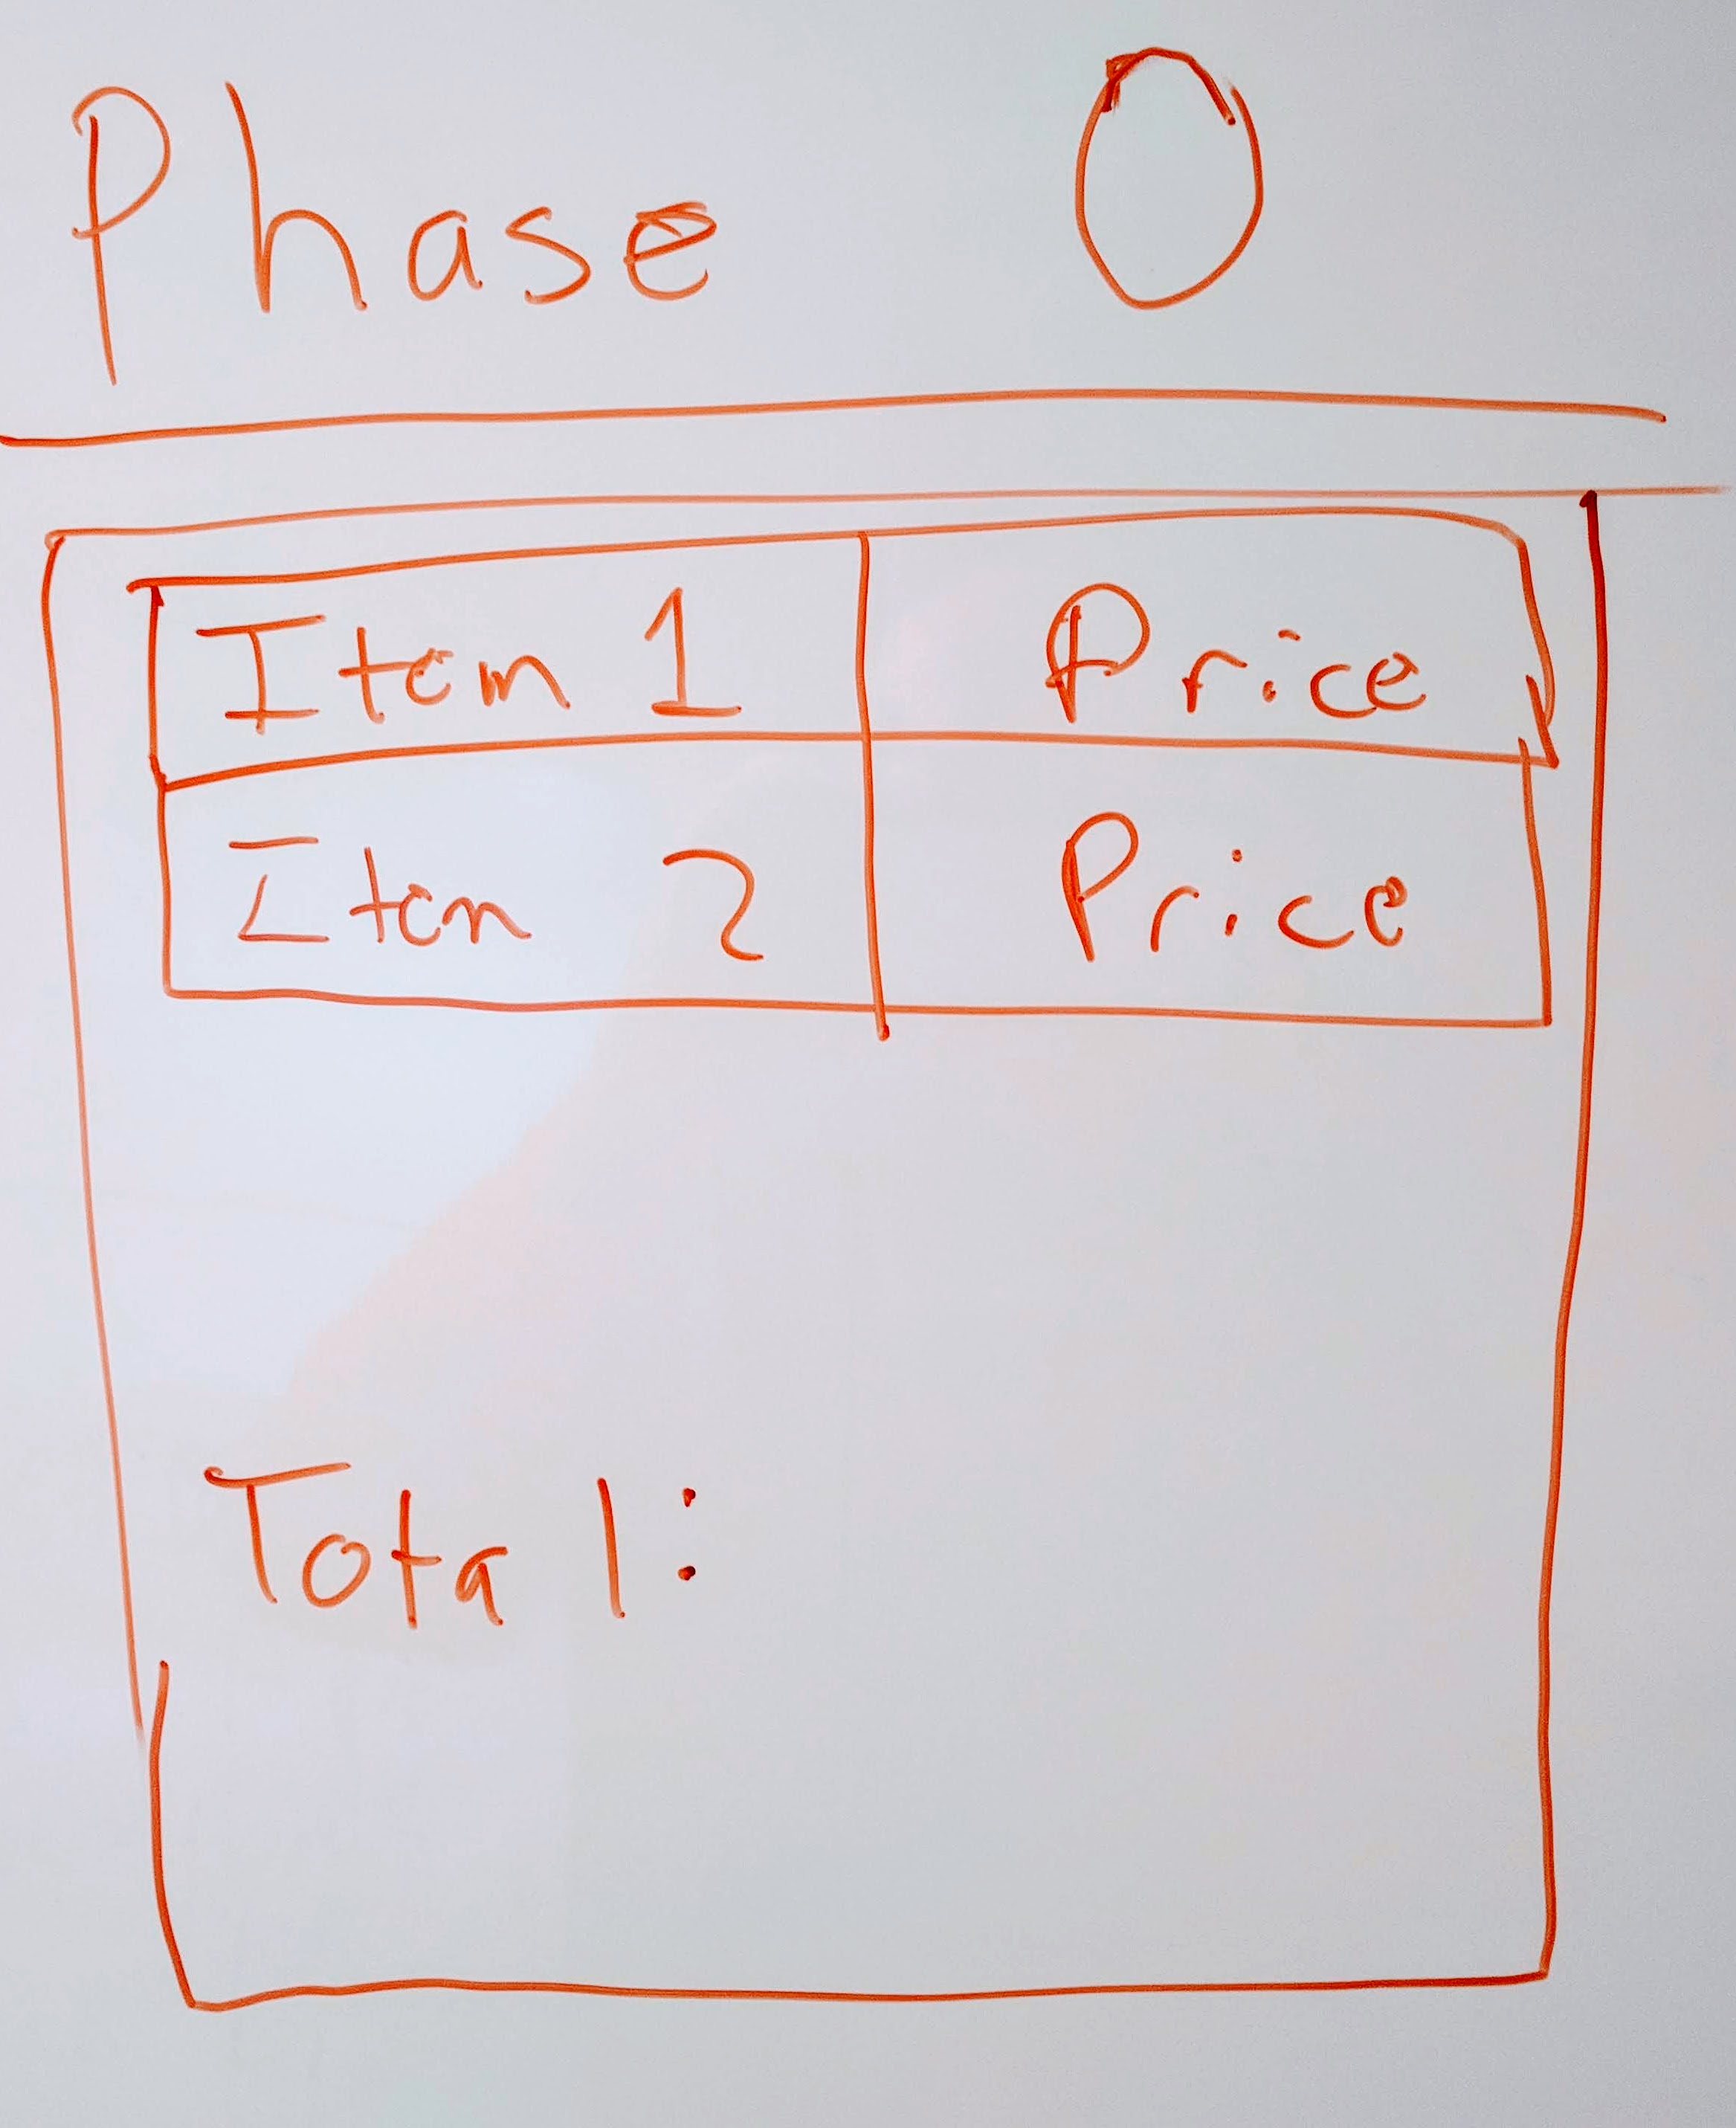 Phase 0
Item 1 Price
Item 2 Price
Total: